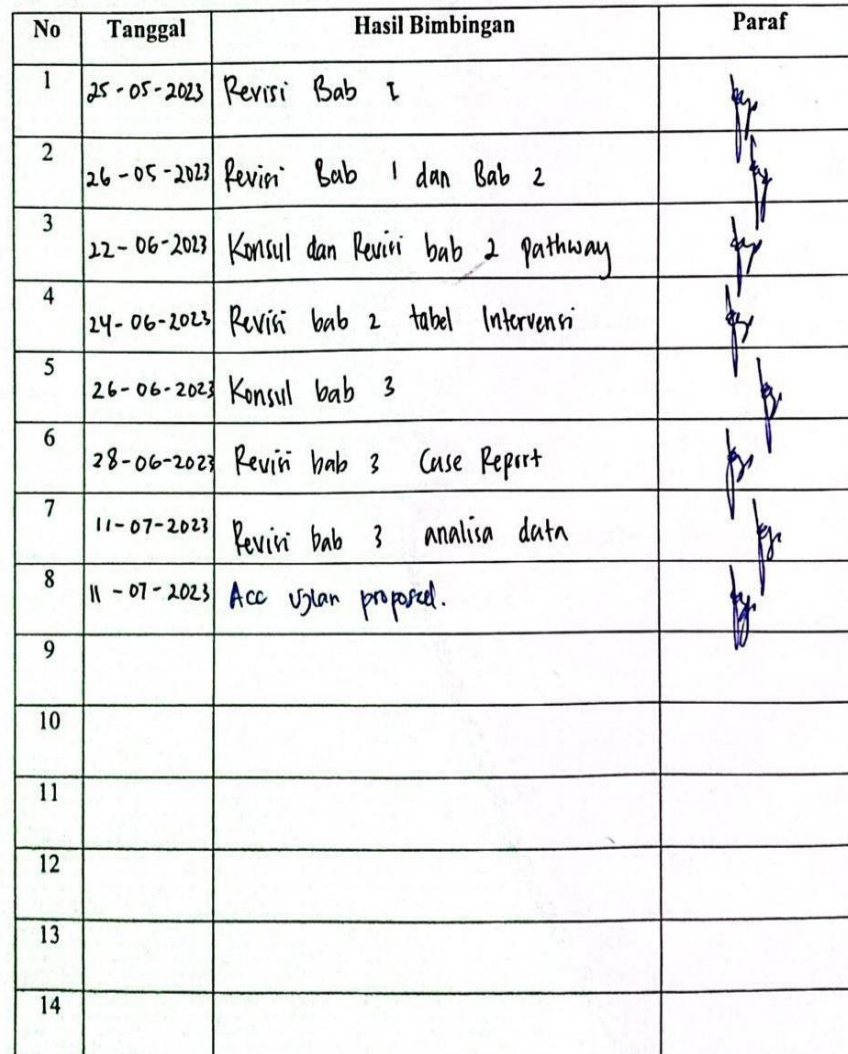 No Tanggal Hasil Bimbingan Paraf
1 25-05-2023 Revisi Bab I
2 26-05-2023 Revisi Bab 1 dan Bab 2
3 22-06-2023 Konsul dan Revisi bab 2 pathway
4 24-06-2023 Revisi bab 2 tabel Intervensi
5 26-06-2023 Konsul bab 3
6 28-06-2023 Revisi bab 3 Case Report
7 11-07-2023 Revisi bab 3 analisa data
8 11-07-2023 Acc proposal.
9
10
11
12
13
14